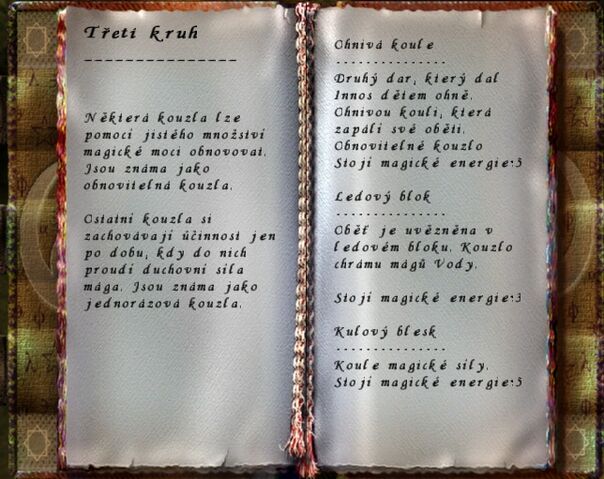 Třetí kruh
---------------
Některá kouzla lze
pomocí jistého množství
magické moci obnovovat.
Jsou známa jako
obnovitelná kouzla.
Ostatní kouzla si
zachovávají účinnost jen
po dobu, kdy do nich
proudí duchovní síla
mága. Jsou známa jako
jednorázová kouzla.
Ohnivá koule
---------------
Druhý dar, který dal
Innos dětem ohně.
Ohnivou kouli, která
zapálí své oběti.
Obnovitelné kouzlo
Stojí magické energie:5
Ledový blok
---------------
Oběť je uvězněna v
ledovém bloku. Kouzlo
chrámu mágů Vody.
Stojí magické energie:3
Kulový blesk
---------------
Koule magické síly.
Stojí magické energie:5